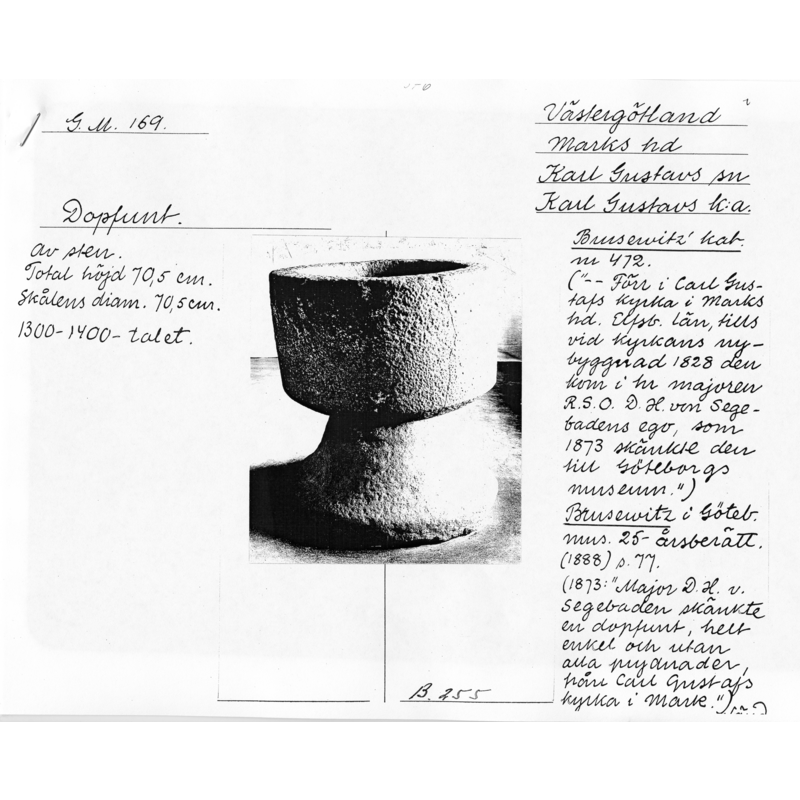 G.M. 169.
Dopfunt.
av sten.
Total höjd 70,5 cm.
Skålens diam. 70,5 cm.
1300-1400-talet.
Västergötland
Marks hd
Karl Gustavs sn
Karl Gustavs k:a.
Brusewitz' kat.
nr 472.
("-- Förr i Carl Gus-
tafs kyrka i Marks
hd. Elfsb. län, tills
vid kyrkans ny-
byggnad 1828 den
kom i hr majoren
R.S.O. D.H. von Sege-
badens ego, som
1873 skänkte den
till Göteborgs
museum.")
Brusewitz i Göteb.
mus. 25-årsberätt.
(1888) s. 77.
(1873: "Major D.H. v.
Segebaden skänkte
en dopfunt, helt
enkel och utan
alla prydnader,
från Carl Gustafs
kyrka i Mark.")
B. 255